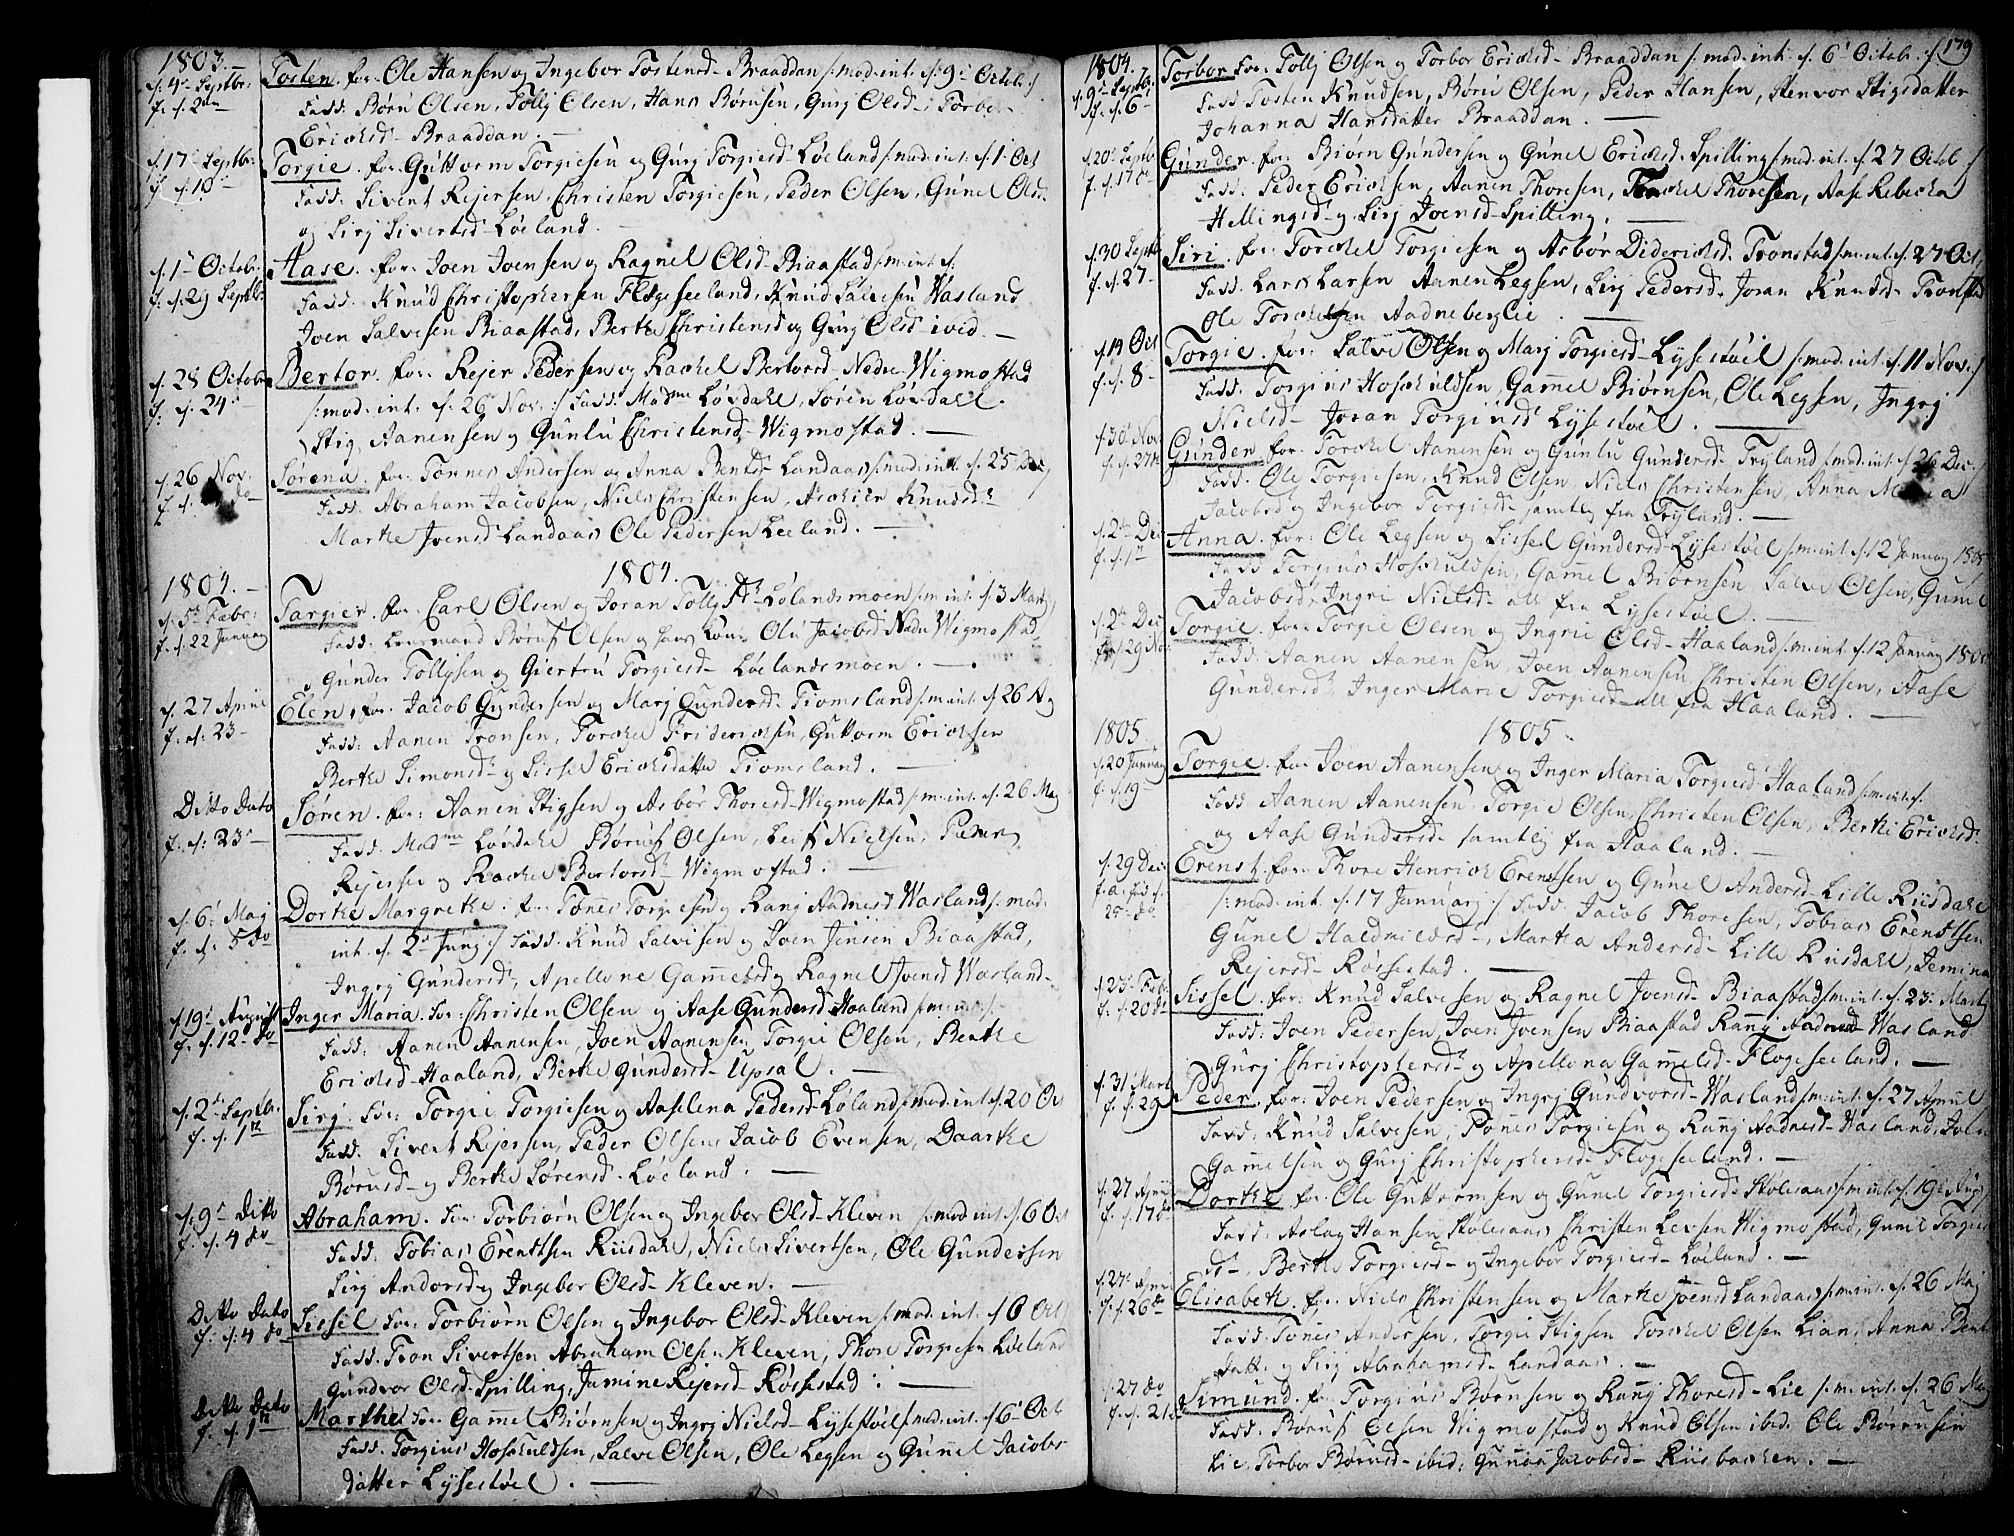 1803.
d. 4 Septbr: Tosten. for. Ole Hansen og Ingebor Tostensd Braaddan /: mod: int. d. 9 Octob:/
Fadd: Børü Olsen, Tollj Olsen, Hans Børüsen, Gurj Olsd
Ericksd Braaddan.
d. 17 Septbr: Torgie. for. Guttorm Torgiesen og Gurj Torgiesd Løeland /: mod: int: d. 1 Oct
Fadd: Sivert Rejersen, Christen Torgiesen, Peder Olsen, Gunel Olsd.
og Sirj Sivertsd Løeland.
d. 1 Octob: Aase. for. Joen Joensen og Ragnel Olsd Biaastad /: m: int d.
f. d. 29 Septb: Fadd: Knud Christophersen Flogeseeland, Knud Salvesen Wasland
Joen Salvesen Biaastad, Berthe Christensd og Gurj Olsd ibid.
d. 28 Octob Bertor. for. Rejer Pedersen og Rachel Bertorsd Nedre Wigmostad
f. d. 24 /: mod: int. d. 26 Nov. :/ Fadd: Madme Løvdahl, Søren Løvdahl.
Stig Aanensen og Gunlu Christensd Wigmostad.
d. 26 Nov. Sørena. for. Tønnes Andersen og Anna Bentsd Landaas /: mod: int d. 25 Dec
Fadd: Abraham Jacobsen, Niels Christensen, Knudsd
Marthe Joensd Landaas Ole Pedersen Leeland.
1804. 1804.
d. 5 Febr: Targier. for. Carl Olsen og Joran Tollj Sd Lølandsmoen /: m: int d. 3 Mart
f. d. 22 Januarj Fadd: Lensmand Børü Olsen og Olü Jacobsd Nedre Wigmostad
Gunder Tolljsen og Giertru Torgiesd Løelandsmoen.
d. 27 April Elen. for. Jacob Gundersen og Marj Gundersd Tiomsland /: m: int. d. 26
f. d. 23 Fadd: Aanen Tronsen, Torckel Fridericksen, Guttorm Ericksen
Berthe Simonsd og Sissel Ericksdatter Tiomsland.
Ditto Dato Søren. for: Aanen Stigsen og Asbør Thoresd Wigmostad /: m: int. d. 26 Maj
f. d. 23 Fadd: Madme Løvdahl Børüf Olsen, Leif Nielsen, Peder
Rejersen og Rachel Bertorsd Wigmostad.
d. 6 Maj Dorthe Margrethe. for. Tønes Torgiesen og Ranj Aadnesd Wasland /: mod:
f. d. 5 do int. d. 2 Junj :/ Fadd: Knud Salvesen og Joen Jensen Biaastad,
Ingrj Gundersd, Apellone Gamelsd og Ragnel Joensd Wasland
d. 19 August Inger Maria. for: Christen Olsen og Aase Gundersd Haaland /: m: int.
f. d. 12 do Fadd: Aanen Aanensen, Joen Aanensen, Torgie Olsen, Berthe
Ericksd Haaland, Berthe Gundersd Upsal.
d. 2 Septbr: Sirj. for: Torgie Torgiesen og Aaselena Pedersd Løland /: mod: int d. 20 Oc
f. d. 1 Fadd: Sivert Rejersen, Peder Olsen Jacob Evensen, Daarthe
Børüsd og Berthe Sørensd Løeland.
d. 9 Ditto Abraham. for. Torbiørn Olsen og Ingebor Olsd Kleven /: mod: int d. 6 Oct
f. d. 4 do Fadd: Tobias Erentsen Riisdahl, Niels Sivertsen, Ole Gundersen
Sirj Andorsd og Ingebor Olsd Kleven.
Ditto Dato Sissel for: Torbiørn Olsen og Ingebor Olsd Kleven /: mod: int. d. 6 Oct
f. d. 4 do Fadd: Tron Sivertsen Abraham Olsen Kleven, Thore Torgiesen Løeland
Gundvor Olsd Spilling, Jamine Rejersd Røssestad.
Ditto Dato Marthe for. Gamel Biørnsen og Ingrj Nielsd Lyssestøel /: mod: int. d. 6 Oct
f. d. 1 Fadd. Torgius Hoskuldsen, Salve Olsen, Ole Legsen og Gunnel Jacobs
datter Lyssestøel.
179
1804.
d. 9 Septb: Torbor for. Tollj Olsen og Torbor Ericksd Braaddan /: mod: int. d. 6 Octob. :/
f. d. 6 Fadd: Tosten Knudsen, Børü Olsen, Peder Hansen, Stenvor Stigsdatter
Johanna Hansdatter Braaddan.
d. 20 Septb Gunder. for. Biørn Gundersen og Gunel Ericksd Spilling /: mod: int. d. 27 Octob :/
f. d. 17 do Fadd: Peder Ericksen, Aanen Thoresen, Thoresen, Aase Rebecka
Hellingsd og Sirj Joensd Spilling.
d. 30 Septb Siri. for. Torckel Torgiesen og Asbør Didericksd Tronstad /: m: int. d. 27 Oct
f. d. 27 Fadd: Lars Larsen Aanen Legsen, Sirj Pedersd Joran Knudsd Tronstad
Ole Torckelsen Aadneberglie.
d. 14 Oct Torgie. for. Salve Olsen og Marj Torgiesd Lyssestøel /: mod: int d. 11 Nov. :/
f. d. 8 Fadd: Torgius Hoskuldsen, Gamel Biørnsen, Ole Legsen, Ingrj
Nielsd Joran Torgiusd Lyssestøel.
d. 30 Nov Gunder. for. Torckel Aanensen og Gunlu Gundersd Tryland /: mod: int. d. 26 Dec. :/
f. d. 27 Fadd: Ole Torgiesen, Knud Olsen, Niels Christensen, Anna Maria
Jacobsd og Ingebor Torgiesd samtlj fra Tryland.
d. 2 Dec Anna. for: Ole Legsen og Sissel Gundersd Lyssestøel /: m: int d. 12 Januarj 1805
f. d. 1 Fadd Torgius Hoskuldsen, Gamel Biørnsen Salve Olsen, Gunel
Jacobsd, Ingri Nielsd all fra Lyssestøel.
d. 2 Dec Torgie. for. Torgie Olsen og Ingrie Olsd Haaland /: m: int d. 12 Januarj 1805
f. d. 29 Nov: Fadd: Aanen Aanensen, Joen Aanensen, Christen Olsen, Aase
Gundersd, Inger Marie Torgiesd all fra Haaland.
1805 1805.
d. 20 Januarj Torgie. for Joen Aanensen og Inger Maria Torgiesd Haaland /: m: int d.
f. d. 19 Fadd Aanen Aanensen, Torgie Olsen, Christen Olsen, Berthe Ericksd
og Aase Gundersd samtlj fra Haaland.
d. 29 Dec: Erenst. for. Thore Henrich Erentsen og Gunel Andersd Lille Riisdahl
f. a. 25 do /: mod: int. d. 17 Januarj :/ Fadd: Jacob Thoresen, Tobias Erentsen
Gunel Haldmildsd, Martha Andersd Lille Riisdahl, Jemina
Rejersd Røssestad.
d. 23 Feb: Sissel. for: Knud Salvesen og Ragnel Joensd Biaastad /: m: int. d. 23 Martj
f. d. 20 do Fadd: Joen Pedersen, Joen Joensen Biaastad Ranj Aadnesd Wasland
Gurj Christophersd og Apellona Gamelsd Flogeseeland.
d. 31 Mart Peder. for. Joen Pedersen og Ingrj Gundvorsd Wasland /: m: int. d. 27 April
f. d. 29 Fadd: Knud Salvesen, Tønes Torgiesen og Ranj Aadnesd Wasland,
Gamelsen og Gurj Christophersd Flogeseeland.
d. 27 April Dorthe for. Ole Guttormsen og Gunel Torgiesd Stolesaas /: m: int. d. 19
f. d. 17 do Fadd: Aslag Hansen Stolesaas Christen Levsen Wigmostad, Gunil Torgie
sd, Berthe Torgiesd og Ingebor Torgiesd Løeland.
d. 27 April Elisabeth. for. Niels Christensen og Marthe Joensd Landaas /: m: int d. 26 Maj
f. d. 26 do Fadd: Tønes Andersen, Torgie Stigsen Torckel Olsen Lian, Anna Bent
datt: og Sirj Abrahamsd Landaas.
d. 27 do Simund. for Torgius Børüsen og Ranj Thoresd Lie /: m: int. d. 26 Maj
f. d. 21 Fadd. Børüf Olsen Wigmostad og Knud Olsen ibid: Ole Børüsen
Lie, Torbor Børüsd ibid, Gunna Jacobsd Riisbacken.